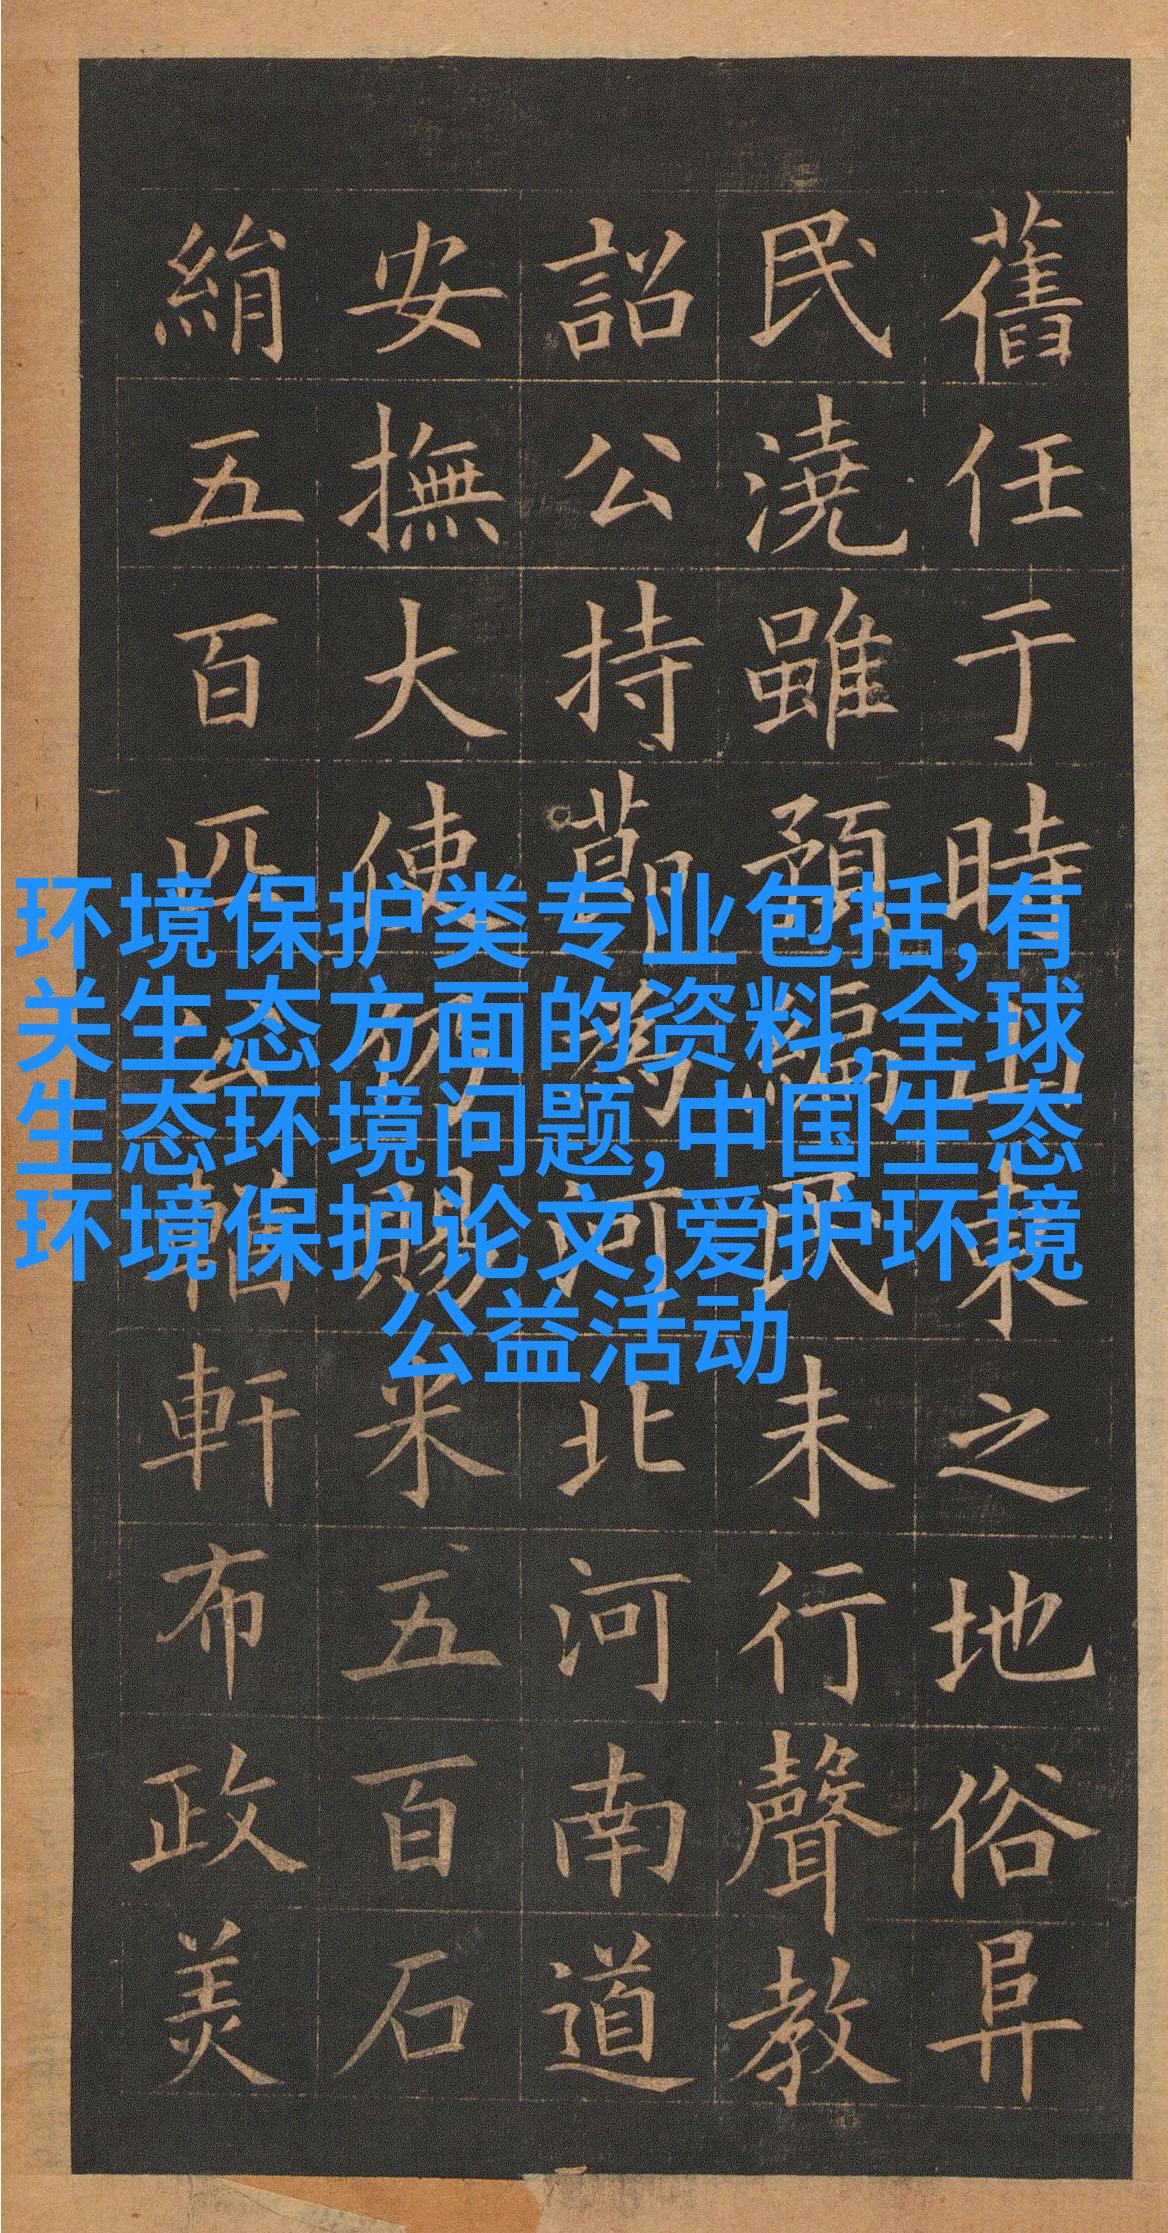 舊任于時山東之地俗阜
民澆雖預編民未行聲教
詔公持節為河北河南道
安撫大使仍賜米五百石
絹五百匹公輶軒布政美
环境保护类专业包括,有
关生态方面的资料,全球
生态环境问题,中国生态
环境保护论文,爱护环境
公益活动